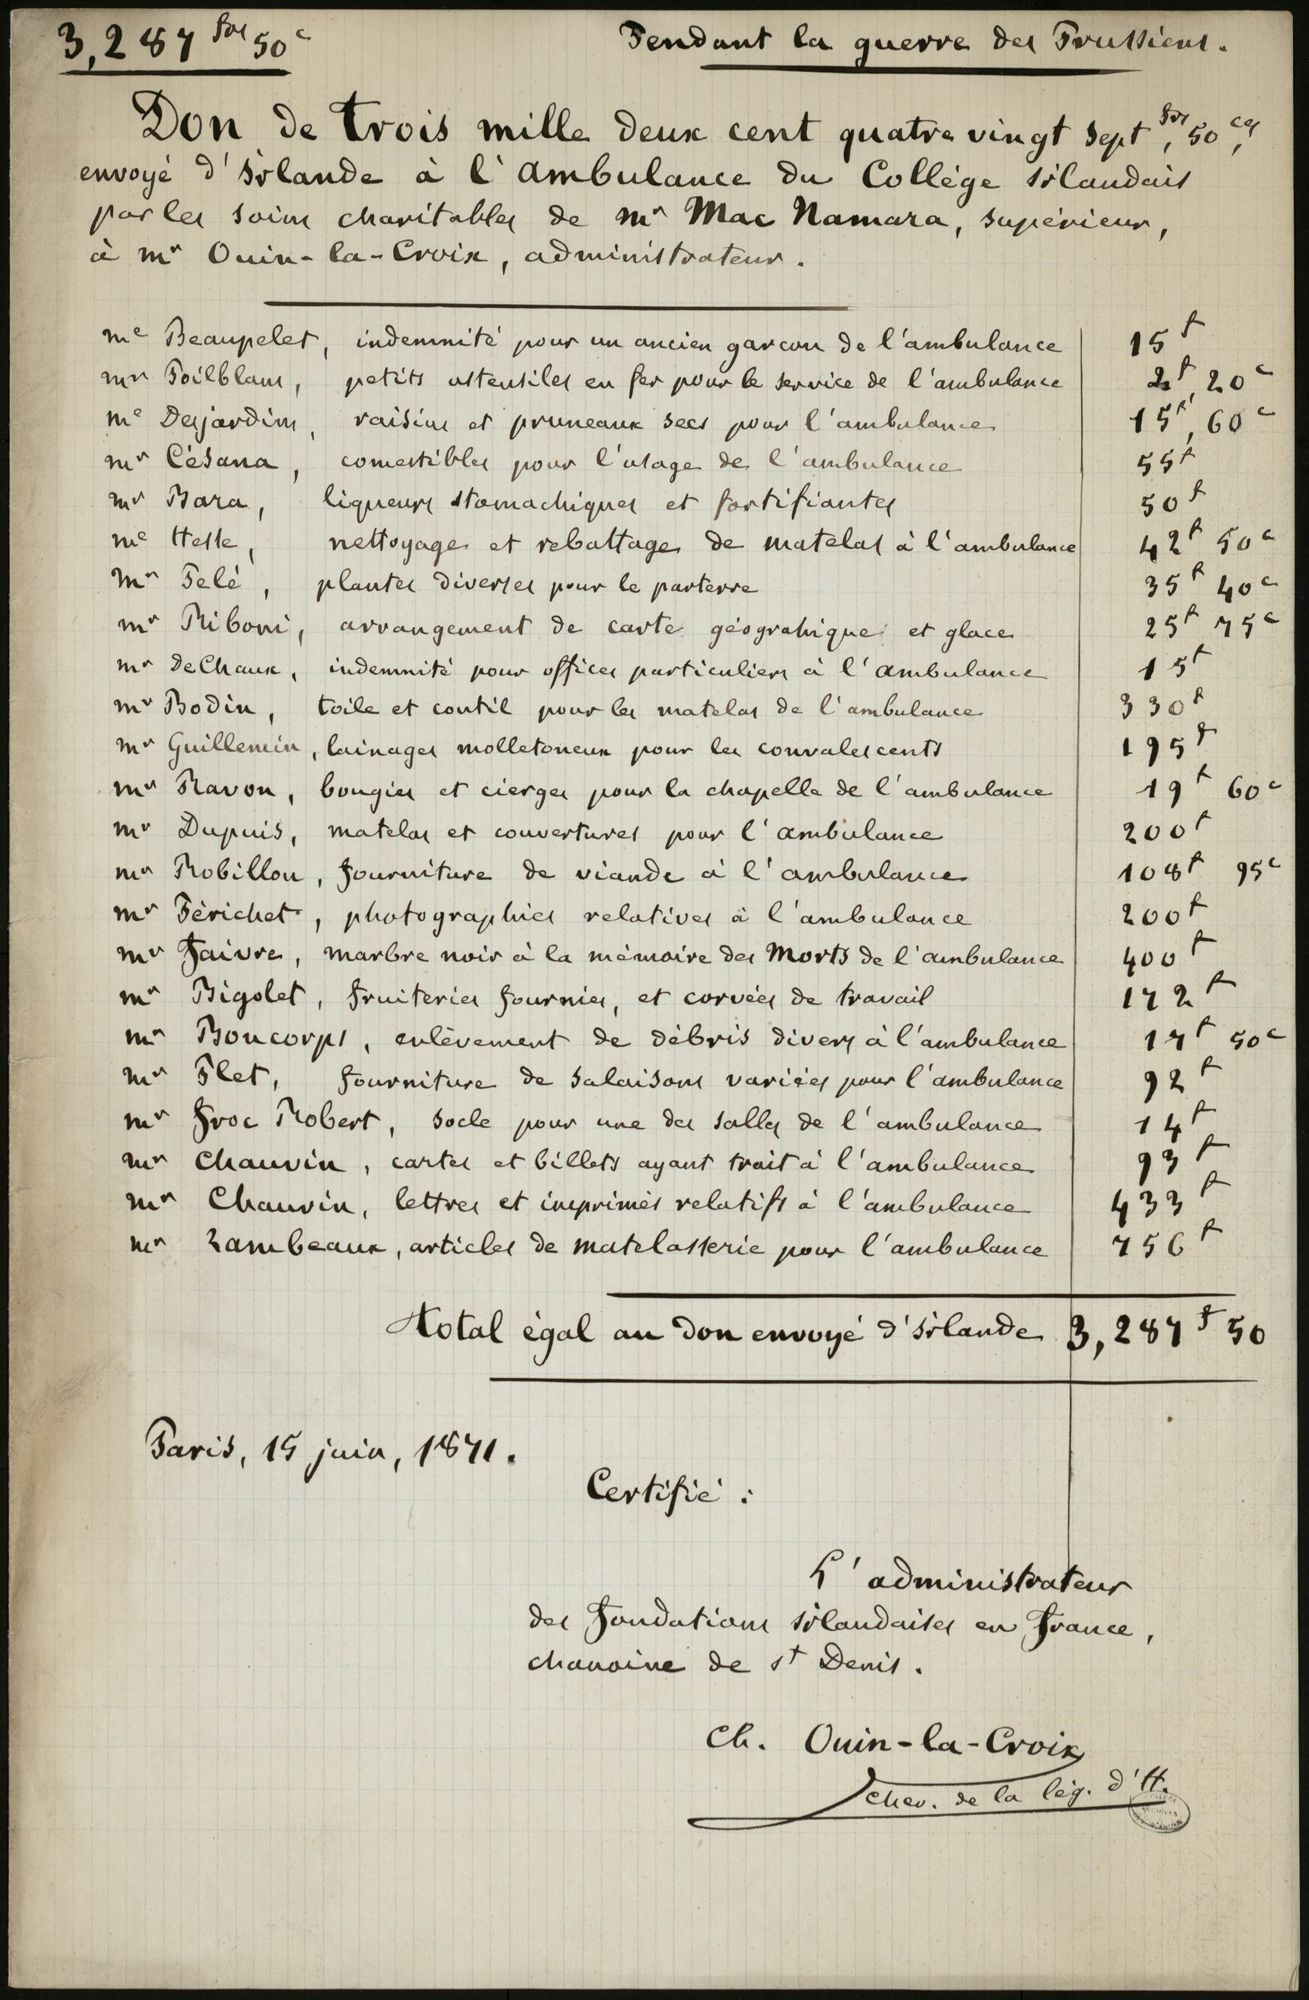 3,287 frs 50 c
Pendant la guerre des Prussiens.
Don de trois mille deux cent quatre vingt sept frs, 50 ces,
envoyé d'Irlande à l'ambulance du Collége irlandais
par les soins charitables de mr Mac Namara, supérieur,
à mr Ouin-la-Croix, administrateur.
me Beaupelet, indemnité pour un ancien garcon de l'ambulance 15f
mr Poilblanc, petits ustensiles en fer pour le service de l'ambulance 2f, 20c
me Desjardins, raisins et pruneaux secs pour l'ambulance 15f, 60c
mr Césana, comestibles pour l'usage de l'ambulance 55f
mr Bara, liqueurs stomachiques et fortifiantes 50f
me Helle, nettoyage et rebattage de matelas à l'ambulance 42f 50c
mr Pelé, plantes diverses pour le parterre 35f 40c
mr Riboni, arrangement de carte géograhique et glace 25f 75c
mr deChaux, indemnité pour offices particuliers à l'ambulance 15f
mr Bodin, toile et coutil pour les matelas de l'ambulance 330f
mr Guillemin, lainages molletoneux pour les convalescents 195f
mr Ravon, bougies et cierges pour la chapelle de l'ambulance 19f 60c
mr Dupuis, matelas et couvertures pour l'ambulance 200f
mr Robillon, fourniture de viande à l'ambulance 108f 95c
mr Périchet, photographies relatives à l'ambulance 200f
mr Faivre, marbre noir à la mémoire des Morts de l'ambulance 400f
mr Bigolet, fruiteries fournies, et corvées de travail 172f
mr Boucorps, enlèvement de débris divers à l'ambulance 17f 50c
mr Flet, fourniture de salaisons variées pour l'ambulance 92f
mr Froc Robert, socle pour une des salles de l'ambulance 14f
mr Chauvin, cartes et billets ayant trait à l'ambulance 93f
mr Chauvin, lettres et imprimés relatifs à l'ambulance 433f
mr Lambeaux, articles de matelasserie pour l'ambulance 756f
total égal au don envoyé d'Irlande 3,287f 50
Paris, 15 juin, 1871.
Certifié :
L'administrateur
des fondations irlandaises en france,
chanoine de st Denis.
Ch. Ouin-la-Croix
chev. de la lég. d'H.